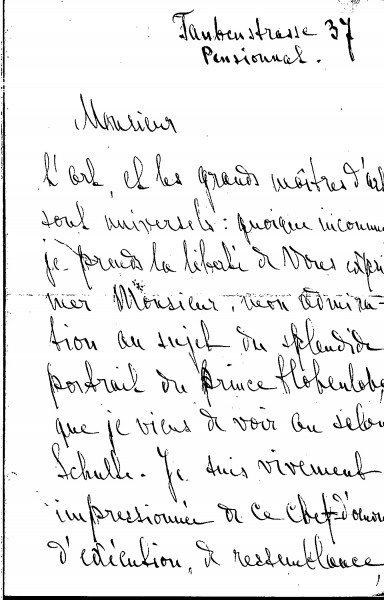 Taubenstrasse 37
Pensionnat.
Monsieur
L'art, et les grands maîtres d'art
sont universels : quoique inconnue
je prends la liberté de Vous expri
mer Monsieur, mon admira-
tion au sujet du splendide
portrait du Prince Hohenlohe,
que je viens de voir au salon
Schulte. Je suis vivement
impressionnée de ce chef-d'œuvre
d'exécution, de ressemblance